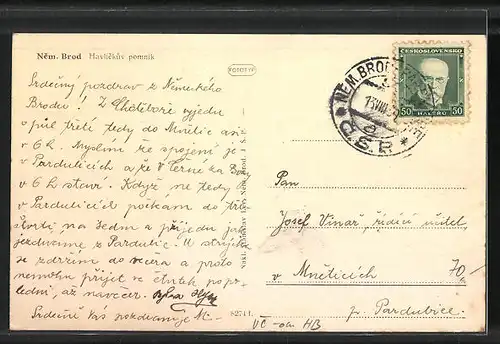 Něm. Brod Havlíčkův pomník
FOTOTYP
Srdečný pozdrav z Německého
Brodu! Z Chotěboře vyjedu
v půl třetí tedy do Mnětic asi
v 6 h. Myslím že spojení je
v Pardubicích a že v Černé za Bory
v 6 h staví. Když ne tedy
v Pardubicích počkám do
čtvrti na sedm a přijedu jak
jezdíváme z Pardubic. U strýčka
se zdržím do večera a proto
nemohu přijet ve čtvrtek
ledni, až navečer.
Srdečně Vás pozdravuje
Nakl.
8274 f.
NĚM. BROD
13.VIII.
a
Č.S.R.
ČESKOSLOVENSKO
50 50
HALÉŘŮ
Pan
Josef Vinař, řídící učitel,
v Mněticích
p. Pardubice.
70,-
VČ - HB